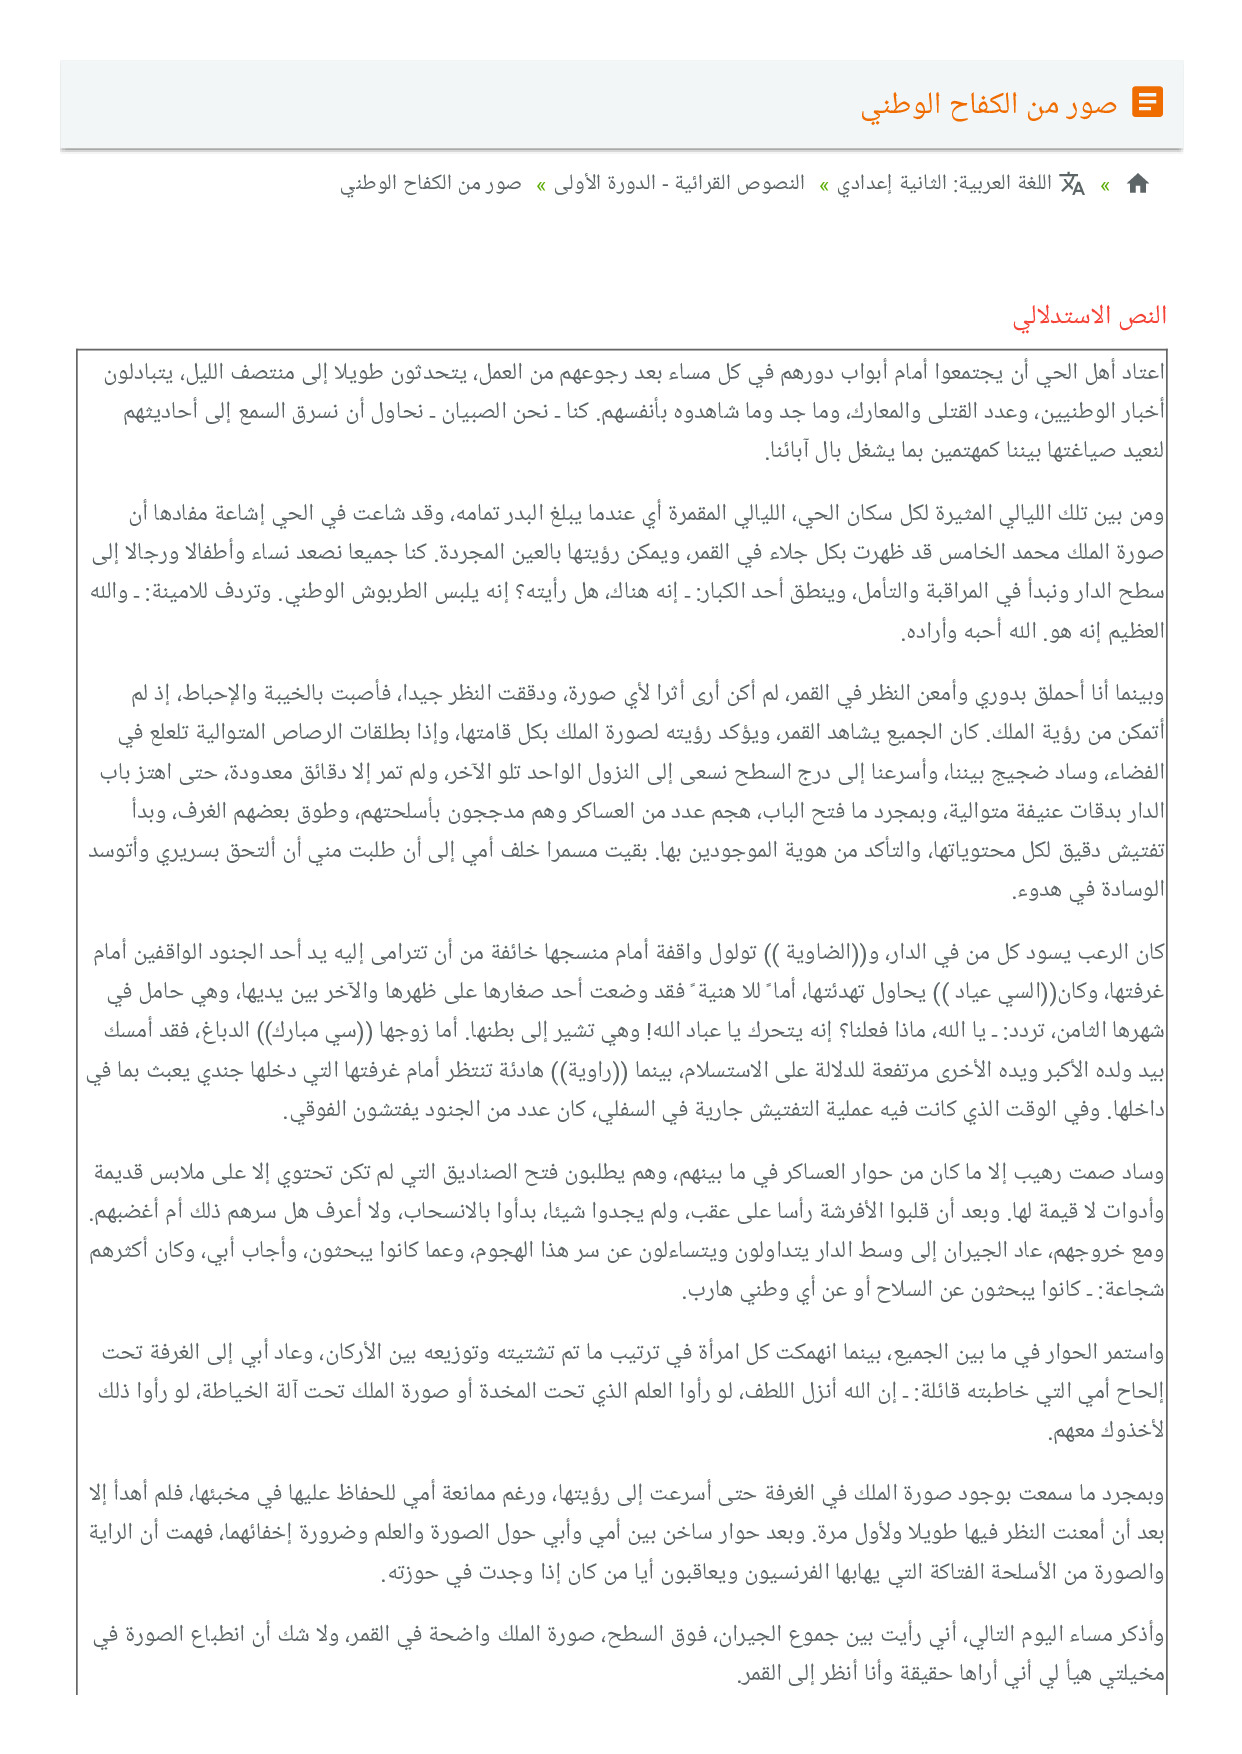 صور من الكفاح الوطني
» اللغة العربية: الثانية إعدادي » النصوص القرائية - الدورة الأولى » صور من الكفاح الوطني
النص الاستدلالي
اعتاد أهل الحي أن يجتمعوا أمام أبواب دورهم في كل مساء بعد رجوعهم من العمل، يتحدثون طويلا إلى منتصف الليل، يتبادلون
أخبار الوطنيين، وعدد القتلى والمعارك، وما جد وما شاهدوه بأنفسهم. كنا ـ نحن الصبيان ـ نحاول أن نسرق السمع إلى أحاديثهم
لنعيد صياغتها بيننا كمهتمين بما يشغل بال آبائنا.
ومن بين تلك الليالي المثيرة لكل سكان الحي، الليالي المقمرة أي عندما يبلغ البدر تمامه، وقد شاعت في الحي إشاعة مفادها أن
صورة الملك محمد الخامس قد ظهرت بكل جلاء في القمر، ويمكن رؤيتها بالعين المجردة. كنا جميعا نصعد نساء وأطفالا ورجالا إلى
سطح الدار ونبدأ في المراقبة والتأمل، وينطق أحد الكبار: ـ إنه هناك، هل رأيته؟ إنه يلبس الطربوش الوطني. وتردف للامينة: ـ والله
العظيم إنه هو. الله أحبه وأراده.
وبينما أنا أحملق بدوري وأمعن النظر في القمر، لم أكن أرى أثرا لأي صورة، ودققت النظر جيدا، فأصبت بالخيبة والإحباط، إذ لم
أتمكن من رؤية الملك. كان الجميع يشاهد القمر، ويؤكد رؤيته لصورة الملك بكل قامتها، وإذا بطلقات الرصاص المتوالية تلعلع في
الفضاء، وساد ضجيج بيننا، وأسرعنا إلى درج السطح نسعى إلى النزول الواحد تلو الآخر، ولم تمر إلا دقائق معدودة، حتى اهتز باب
الدار بدقات عنيفة متوالية، وبمجرد ما فتح الباب، هجم عدد من العساكر وهم مدججون بأسلحتهم، وطوق بعضهم الغرف، وبدأ
تفتيش دقيق لكل محتوياتها، والتأكد من هوية الموجودين بها. بقيت مسمرا خلف أمي إلى أن طلبت مني أن ألتحق بسريري وأتوسد
الوسادة في هدوء.
كان الرعب يسود كل من في الدار، و((الضاوية )) تولول واقفة أمام منسجها خائفة من أن تترامى إليه يد أحد الجنود الواقفين أمام
غرفتها، وكان((السي عياد )) يحاول تهدئتها، أما ً للا هنية ً فقد وضعت أحد صغارها على ظهرها والآخر بين يديها، وهي حامل في
شهرها الثامن، تردد: ـ يا الله، ماذا فعلنا؟ إنه يتحرك يا عباد الله! وهي تشير إلى بطنها. أما زوجها ((سي مبارك)) الدباغ، فقد أمسك
بيد ولده الأكبر ويده الأخرى مرتفعة للدلالة على الاستسلام، بينما ((راوية)) هادئة تنتظر أمام غرفتها التي دخلها جندي يعبث بما في
داخلها. وفي الوقت الذي كانت فيه عملية التفتيش جارية في السفلي، كان عدد من الجنود يفتشون الفوقي.
وساد صمت رهيب إلا ما كان من حوار العساكر في ما بينهم، وهم يطلبون فتح الصناديق التي لم تكن تحتوي إلا على ملابس قديمة
وأدوات لا قيمة لها. وبعد أن قلبوا الأفرشة رأسا على عقب، ولم يجدوا شيئا، بدأوا بالانسحاب، ولا أعرف هل سرهم ذلك أم أغضبهم.
ومع خروجهم، عاد الجيران إلى وسط الدار يتداولون ويتساءلون عن سر هذا الهجوم، وعما كانوا يبحثون، وأجاب أبي، وكان أكثرهم
شجاعة: ـ كانوا يبحثون عن السلاح أو عن أي وطني هارب.
واستمر الحوار في ما بين الجميع، بينما انهمكت كل امرأة في ترتيب ما تم تشتيته وتوزيعه بين الأركان، وعاد أبي إلى الغرفة تحت
إلحاح أمي التي خاطبته قائلة: ـ إن الله أنزل اللطف، لو رأوا العلم الذي تحت المخدة أو صورة الملك تحت آلة الخياطة، لو رأوا ذلك
لأخذوك معهم.
وبمجرد ما سمعت بوجود صورة الملك في الغرفة حتى أسرعت إلى رؤيتها، ورغم ممانعة أمي للحفاظ عليها في مخبئها، فلم أهدأ إلا
بعد أن أمعنت النظر فيها طويلا ولأول مرة. وبعد حوار ساخن بين أمي وأبي حول الصورة والعلم وضرورة إخفائهما، فهمت أن الراية
والصورة من الأسلحة الفتاكة التي يهابها الفرنسيون ويعاقبون أيا من كان إذا وجدت في حوزته.
وأذكر مساء اليوم التالي، أني رأيت بين جموع الجيران، فوق السطح، صورة الملك واضحة في القمر، ولا شك أن انطباع الصورة في
مخيلتي هيأ لي أني أراها حقيقة وأنا أنظر إلى القمر.